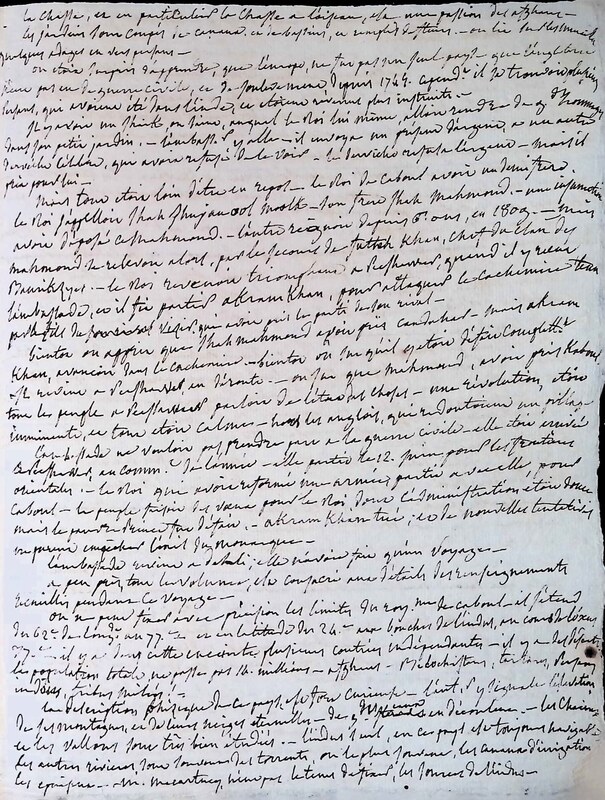 la chasse, et en particulier la chasse à l'oiseau, est une passion des afghans.
les jardins sont coupés de canaux, et de bassins, et remplis de fleurs. — on lit
quelques adages en vers persans —
on étoit surpris d'apprendre, que l'europe, ne fut pas un seul pays — que l'angleterre
n'eut pas eu de guerre civile, et de soulèvement, depuis 1745. cepend.t il se trouvoit
persans, qui avoient été dans l'inde, et étoient revenus plus instruits —
il y avoit un auquel le Roi lui même, alloit rendre
dans son petit jardin. — l'ambass.r y alla — il envoya un présent d'argent, à un autre
derviche célèbre, qui avoit refusé de le voir — le derviche refusa l'argent — mais il
pria pour lui —
mais tout étoit loin d'être en repos — le Roi de caboul avoit
le Roi s'appelloit Shah Shujau ool moolk — son frère Shah Mahmood. — une
avoit déposé ce Mahmood. — l'autre régnoit depuis 6. ans, en 1809. — mais
mahmood se relevoit alors, par le secours de futteh Khan, chef du clan des
Baurikzyes — le Roi revenoit triomphant à Peshawer, quand il y reçut
l'ambassade, et il fit partir akram Khan, pour attaquer le cachemire tenu
par le fils de vizir, qui avoit pris le parti de son rival —
bientôt on apprit que Shah Mahmood avoit pris candahar — mais akram
Khan, avançoit dans le cachemire — bientôt on sut qu'il y étoit défait complette
il revint à Peshawer en déroute. — on sut que mahmood, avoit pris Kaboul
tout le peuple à Peshawer parloit de l'état des choses — une révolution, étoit
imminente, et tout étoit calme — hors les anglois, qui redoutoient un pillage
l'ambassade ne voulant pas prendre part à la guerre civile — elle étoit arrivée
à Peshawer, au comm.t de l'année — elle partit le 12. juin pour les
orientales. — le Roi qui avoit reformé une armée, partit avec elle, pour
caboul — le peuple faisoit des vœux pour le Roi, dont l'administration étoit douce
mais le pauvre Prince fut défait. — akram Khan tué; et de nouvelles tentatives
ne purent empêcher l'exil du monarque —
l'ambassade revint à dehli; elle n'avoit fait qu'un voyage —
à peu près tout le volume, est consacré aux détails des renseignements
recueillis pendant ce voyage —
on ne peut fixer avec précision les limites du royaume de caboul — il s'étend
du 62.e de long. au 77.e et en latitude du 24.e aux bouches de l'indus, au cours de l'oxus,
37.e — il y a dans cette enceinte, plusieurs contrées indépendantes — il y a des déserts
la population totale ne passe pas 14. millions — afghans. — Belochistans, tartares, persans
indous, tribus mêlées!
la description physique de ce pays, est fort curieuse — l'aut. s'y signale l'élévation
de ses montagnes, et de leurs neiges éternelles — de — les chaînes
et les vallons sont très bien étudiés. — l'indus seul, en ce pays, est toujours navigable
les autres rivières sont souvent des torrents, où le plus souvent, les canaux d'irrigation
les épuisent — m. macartney, n'eut pas le tems de fixer, les sources de l'indus —